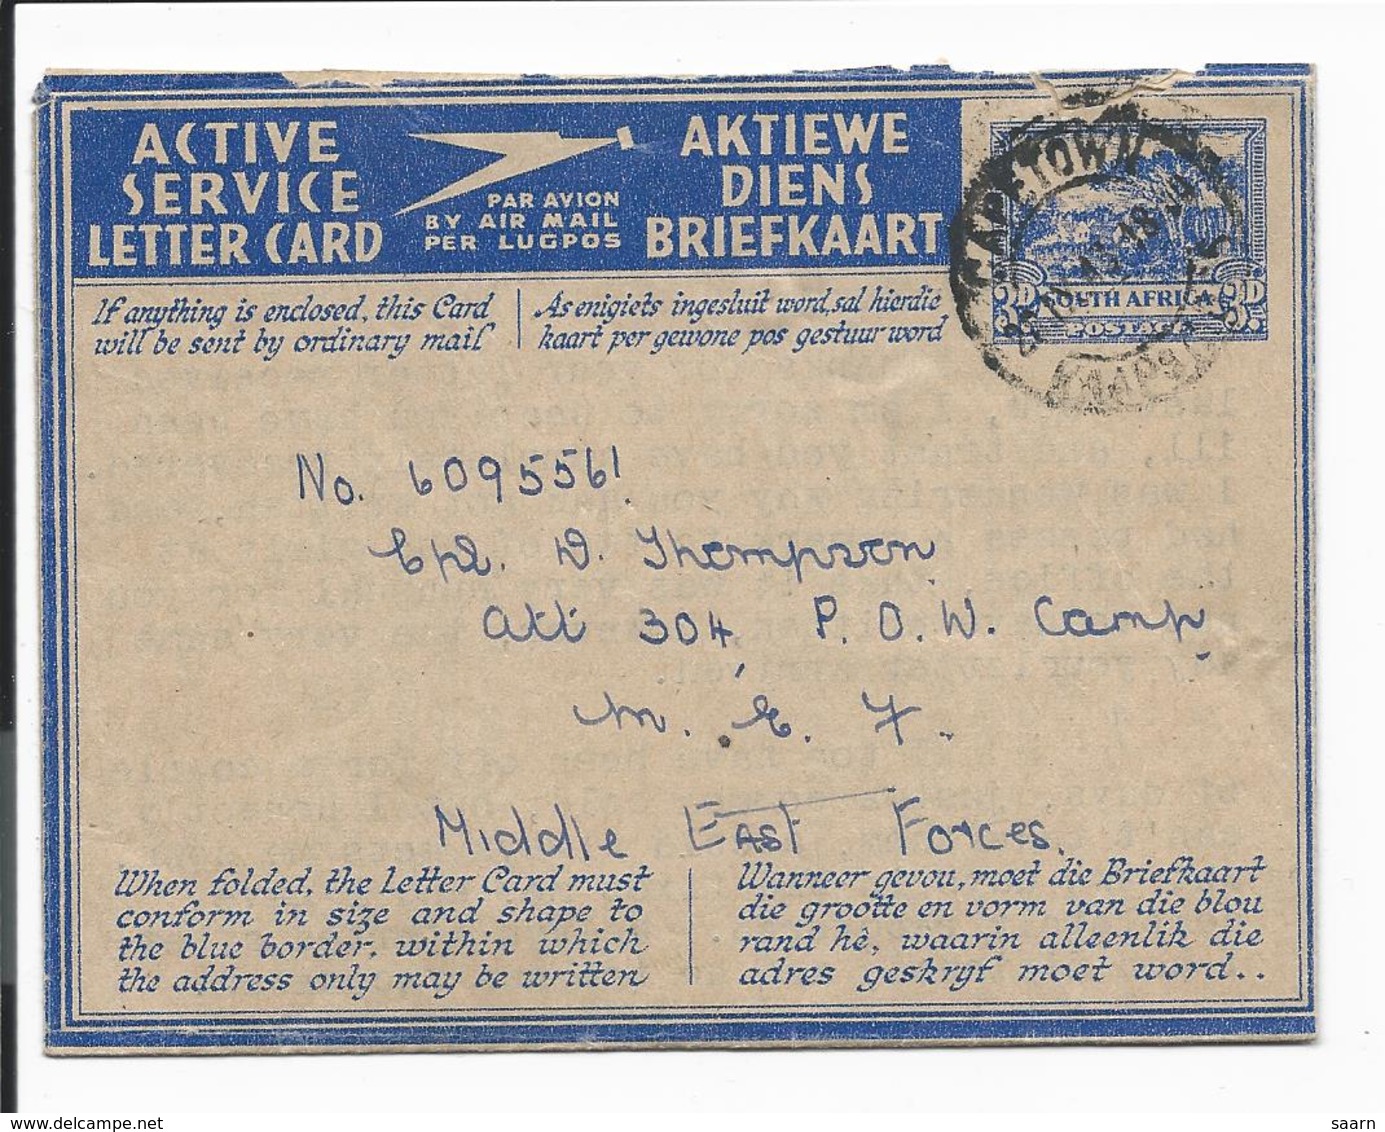 ACTIVE
SERVICE
LETTER CARD
PAR AVION
BY AIR MAIL
PER LUGPOS
AKTIEWE
DIENS
BRIEFKAART
CAPETOWN
SOUTH AFRICA
POSTAGE
KAAPSTAD
If anything is enclosed, this Card
will be sent by ordinary mail
As enigiets ingesluit word, sal hierdie
kaart per gewone pos gestuur word
No. 6095561.
Cpl. D. Thompson.
Att 304, P. O. W. Camp,
M. E. F.
Middle East Forces.
When folded, the Letter Card must
conform in size and shape to
the blue border, within which
the address only may be written
Wanneer gevou, moet die Briefkaart
die grootte en vorm van die blou
rand hê, waarin alleenlik die
adres geskryf moet word..
www.delcampe.net
saarn